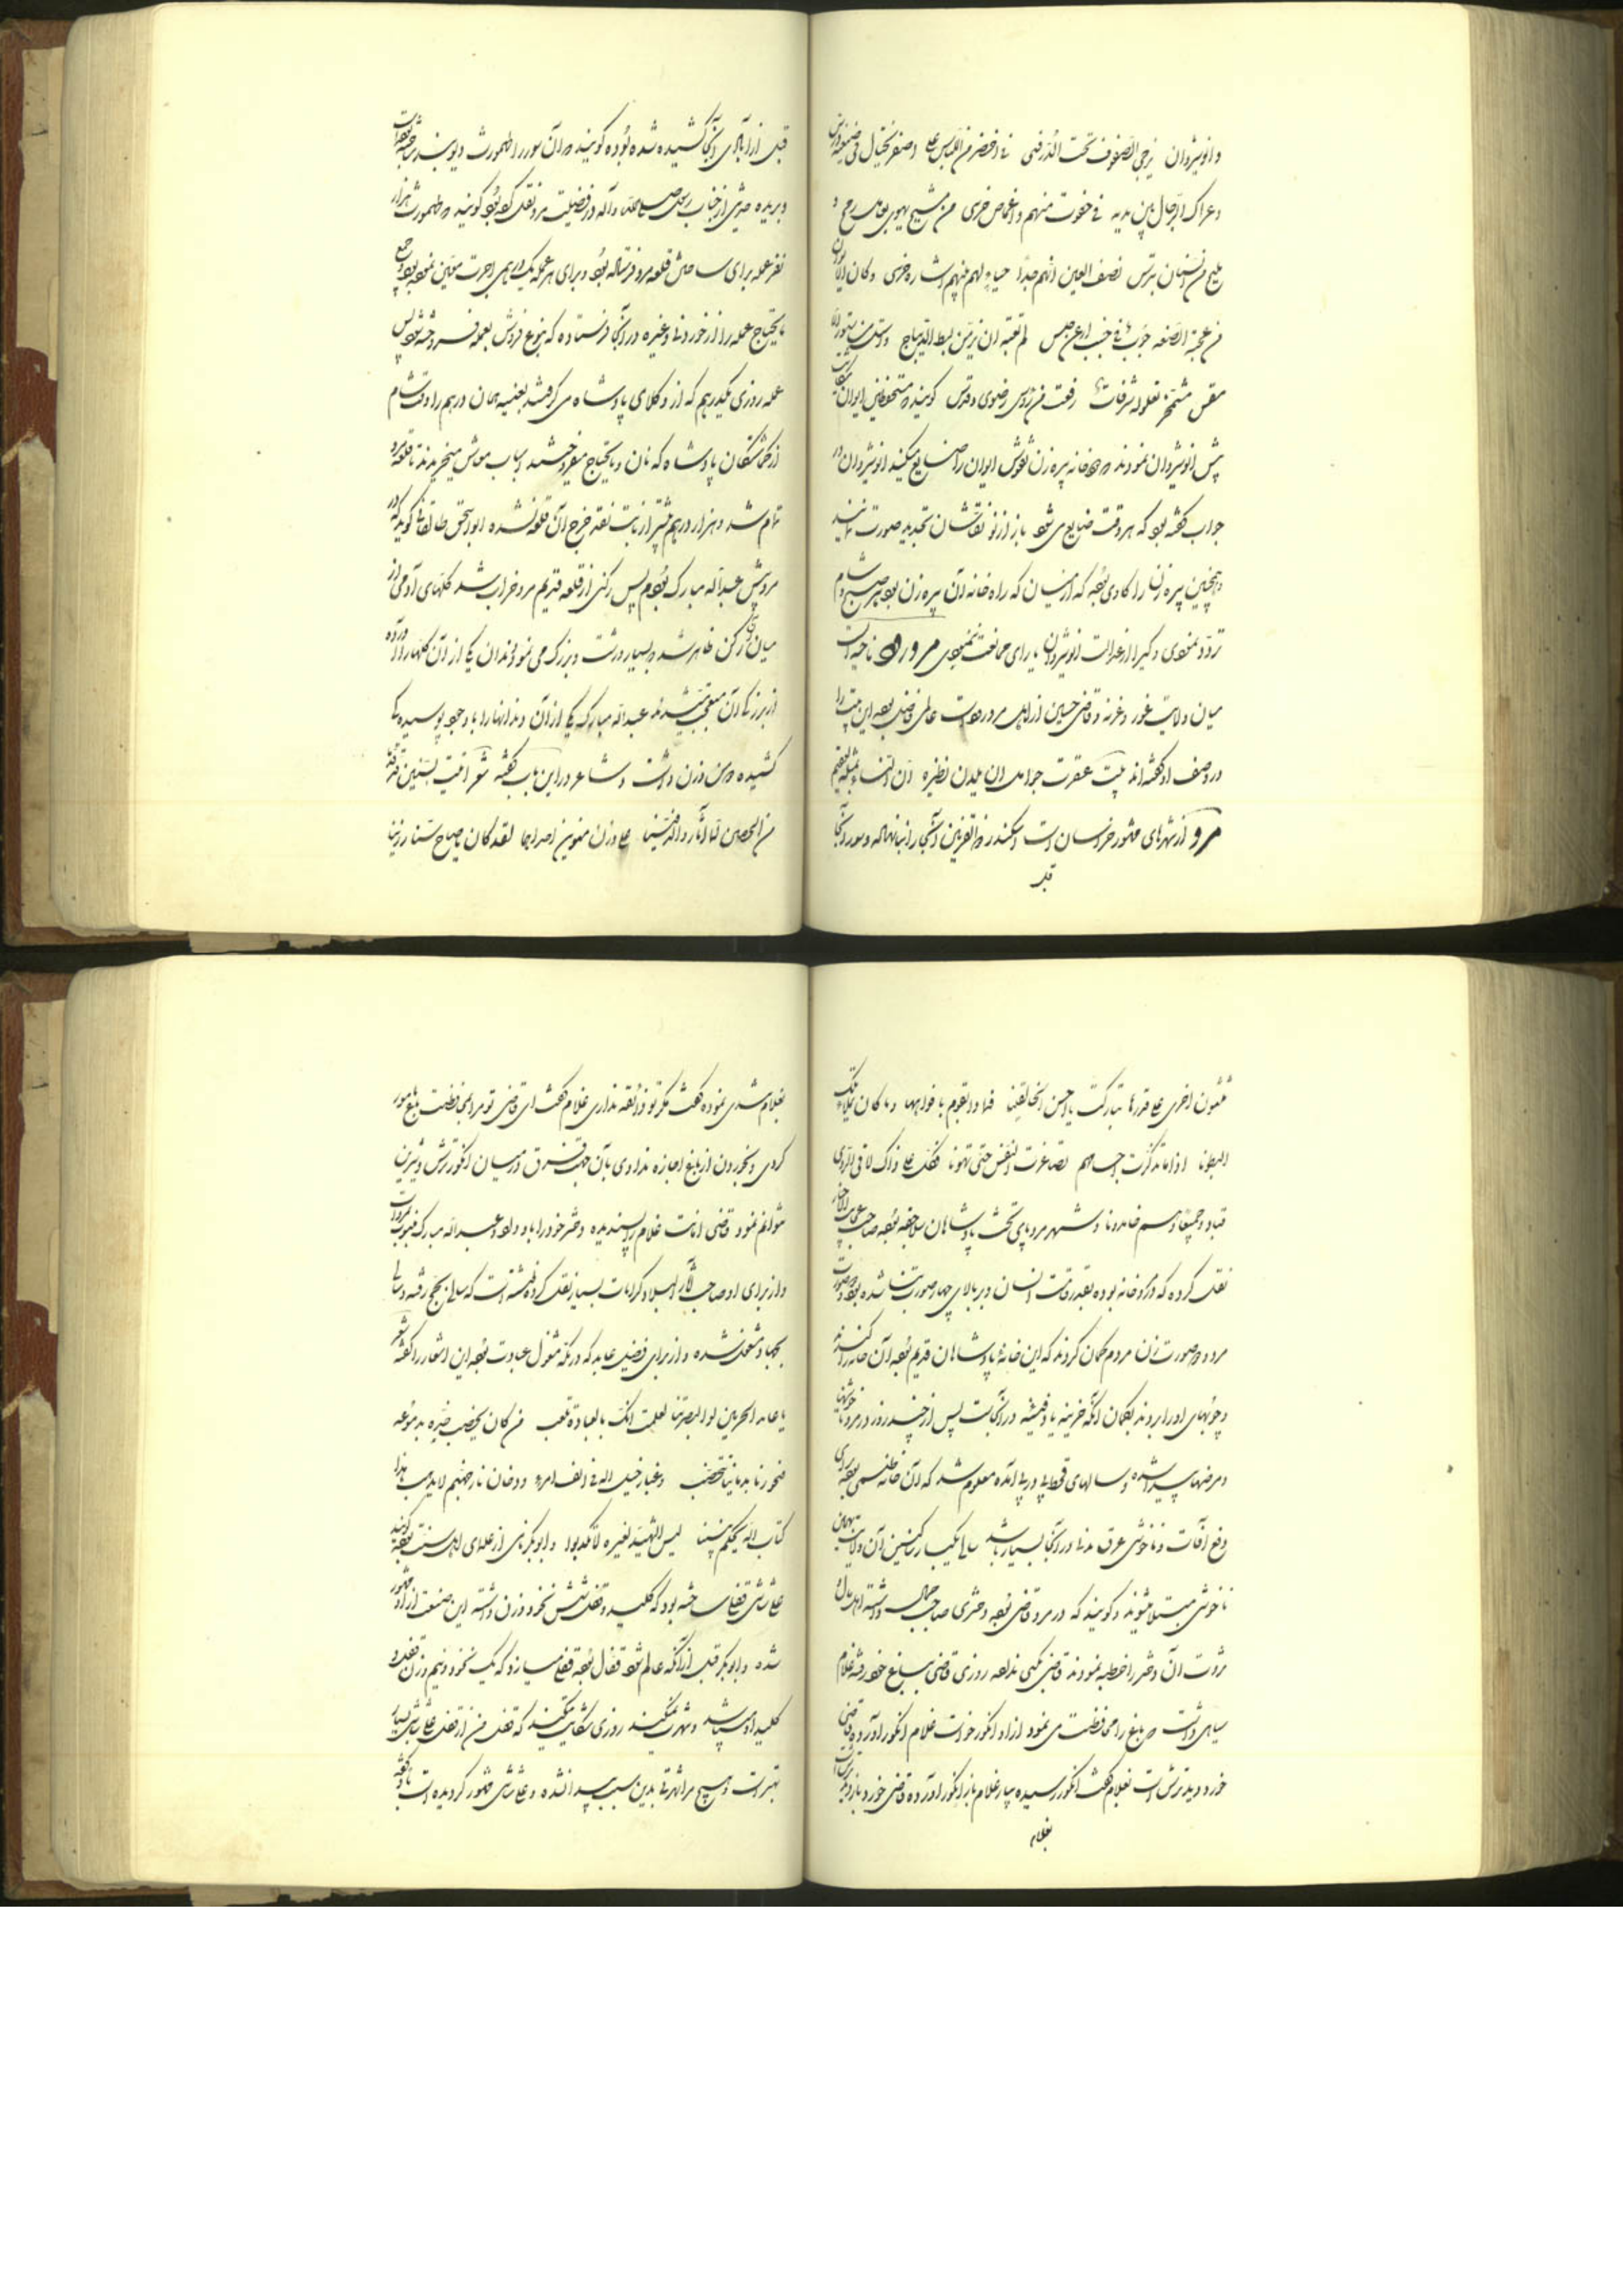 وانوشیروان یزجی الصفوف تحت الدرفس فی اخضر من اللباس علی اصفر یختال فی صبیغة ورس
وعراک الرجال بین یدیه فی خفوت منهم واغماض جرس من مشیح یهوی بعامل رمح و
ملیح من السنان بترس تصف العین انهم جدا حیاء لهم بینهم اشاره خرس وکان الایوان
من عجب الصنعه جوب فی جنب ارعن جلس لم تعبه ان بز من بسط الدیباج واستل من ستور
مقس مشمخر تعلو له شرفات رفعت فی رؤس رضوی وقدس کویند مستحفظین ایوان شکایت
پیش انوشیروان نمودند که خانه پیره زن نقوش ایوان را ضایع میکند انوشیروان در
جواب گفته بود که هر وقت ضایع می شود باز از نو نقاشان تجدید صورت نمایند
وهمچنین پیره زن را کاوی بوده که از میان که راه خانه آن پیره زن بود هر صبح و شام
تردد نمودی و کسرا از عدالت انوشیروان یارای ممانعت نبودی مرورود ناحیه است
میان ولایت غور و غزنه و قاضی حسین از اهل مرورود است عالمی فاضل بوده این بیت را
در وصف او گفته اند بیت عقرت حوامل ان یلدن نظیره ان النساء بمثله لعقیم
مرو از شهرهای مشهور خراسان است و اسکندر ذوالقرنین آنجا را بنا نهاده و سور آنجا
قبل
قبل از آبادی آنجا کشیده شده بوده گویند که آن سور را طهمورث دیوبند ساخته است
و بریده حدیثی از جناب رسول صلی الله علیه و آله در فضیلت مرو نقل کرده بود گویند که طهمورث هزار
نفر عمله برای ساختن قلعه مرو فرستاده بود و برای هر عمله یک درهم اجرت معین نموده بود و جمیع
مایحتاج عمله را از خوردنی و غیره در آنجا فرستاده که بنوع فروش بعمله فروخته شود پس
عمله روزی یکدرهم که از وکلای پادشاه می گرفتند بعینه همان درهم را وقت شام
از گماشتگان پادشاه که نان و مایحتاج میفروختند اسباب معاش میخریدند تا قلعه مرو
تمام شد و هزار درهم بیشتر از بابت نقد خرج آن قلعه نشده ابو اسحق طالقانی گوید که در
مرو پیش عبدالله مبارک بودم پس رکنی از قلعه قدیم مرو خراب شد کلهای آدمی از
میان آن رکن ظاهر شد که بسیار درشت و بزرگ می نمود دندان یکی از آن کلها را در آورده
از بزرگی آن متعجب شدند عبدالله مبارک یکی از آن دندانها را با وجود پوسیدگی
کشیده دو من وزن داشت و شاعر در این باب گفته شعر اتیت بسنین قد رمتا
من الحصن لما اثاروا الدفینا علی وزن منوین احداهما لقد کان یا صاح سنا رزینا
ثلثون اخری علی قدرها تبارکت یا احسن الخالقینا فماذا یقوم بافواهها وما کان یملاء تلک
البطونا اذا ما تذکرت اجسامهم تصاغرت النفس حتی تهونا فکل علی ذاک لاقی الردی
فبادوا جمیعا وهم خامدونا و شهر مرو پای تخت پادشاهان سلاجقه بوده صاحب عجایب الاخبار
نقل کرده که در مرو خانه بوده بقدر قامت انسان و بر بالای چهار صورت بنا شده بود دو صورت
مرد و دو صورت زن مردم گمان کردند که این خانه پادشاهان قدیم بوده آن خانه را کندند
و چوبهای او را بردند بگمان آنکه خزینه یا دفینه در آنجاست پس از چند روز در مرو ناخوشیها
و مرضها پیدا شده و سالهای قحط پی در پی آمده معلوم شد که آن خانه طلسمی بوده برای
دفع آفات و ناخوشی عرق مدنی در آنجا بسیار باشد سالی یکبار ساکنین آن ولایت بهمان
ناخوشی مبتلا میشوند و گویند که در مرو قاضی بوده دختری صاحب جمال داشته اهل مال و
ثروت آن دختر را خطبه نمودند قاضی بکسی نداده روزی قاضی بباغ خود رفته غلام
سیاهی داشت که باغ را محافظت می نمود از او انگور خواست غلام انگور آورده قاضی
خورد دید ترش است بغلام گفت انگور رسیده بیار غلام باز انگور آورده قاضی خورد باز دید ترش است
بغلام
بغلام تندی نموده گفت مگر تو ذائقه نداری غلام گفت ای قاضی تو مرا بمحافظت باغ مامور
کردی و بخوردن از باغ اجازه ندادی بآن جهت فرق در میان انگور ترش و شیرین
نتوانم نمود قاضی امانت غلام را پسندیده دختر خود را باو داده و عبدالله مبارک منسوب بمرو است
و از برای او صاحب آثار البلاد کرامات بسیار نقل کرده نوشته است که سالی بحج رفته و سالی
بجهاد مشغول شده و از برای فضیل عابد که در مکه مشغول عبادت بوده این اشعار را گفته شعر
یا عابد الحرمین لو ابصرتنا لعلمت انک بالعبادة تلعب من کان یخضب خده بدموعه
فنحورنا بدمائنا تتخضب وغبار خیل الله فی انف امرء ودخان نار جهنم لا یذهب هذا
کتاب الله یحکم بیننا لیس الشهید لغیره لا یکذب و ابو بکر نامی از علمای اهل سنت بوده گویند
علی شاشی قفلی ساخته بود که کلید و قفلش شش نخود وزن داشته این صنعت از او مشهور
شده و ابو بکر قبل از آنکه عالم شود قفال بوده قفلی میسازد که یک نخود و نیم وزن قفل و
کلید او میباشد و شهرت نمیکند روزی شکایت میکند که قفل من از قفل علی شاشی بسیار
بهتر است و هیچ مرا شهرتی بدین سبب پیدا نشده و علی شاشی مشهور گردیده است باو گفته